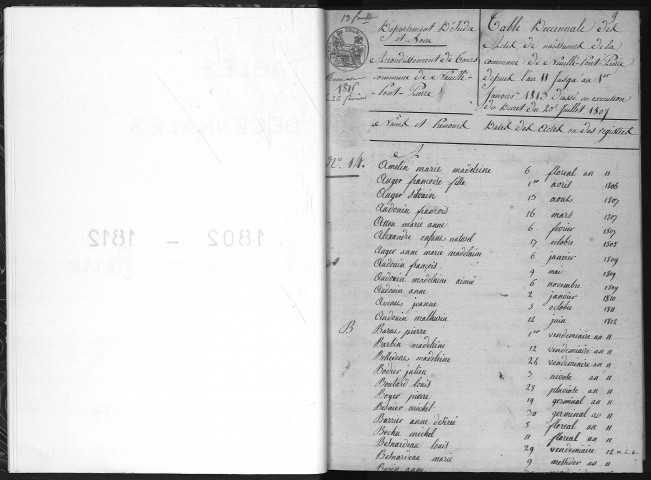 13 f.lle
Département D'Indre
et Loire
Arrondissement de Tours
commune de Neuillé
Pont Pierre
1815
Table Decennale des
Actes de naissance de la
commune de Neuillé-Pont-Pierre
depuis l'an 11 jusqu'au 1er
janvier 1813 dressé en execution
du Decret du 20 juillet 1807
Noms et Prenoms
Dates des Actes ou des registres
N° 14.
A
Amelin marie madeleine 6 floreal an 11
Auger francoise fille 1er avril 1806
Auger silvain 13 aout 1807
Audouin francois 16 mars 1807
marie anne 6 fevrier 1807
Alexandre enfant naturel 17 octobre 1808
Auger anne marie madelaine 6 janvier 1809
Audouin françois 9 mai 1809
Audouin madelaine aimée 6 novembre 1809
Audouin anne 2 janvier 1810
jeanne 5 octobre 1811
Audouin mathurin 12 juin 1812
B
pierre 1er vendemiaire an 11
Barbin madeleine 12 vendemiaire an 11
madeleine 24 vendemiaire an 11
Bodier julien 3 nivose an 11
Boutard louis 28 pluviose an 11
Boyer pierre 19 germinal an 11
Besnier michel 30 germinal an 11
Barrier anne desirée 8 floreal an 11
michel 11 floreal an 11
Besnardeau louis 29 vendemiaire 12
Besnardeau marie 9 messidor an 11
anne
TABLES
DECENNALES
1802 - 1812